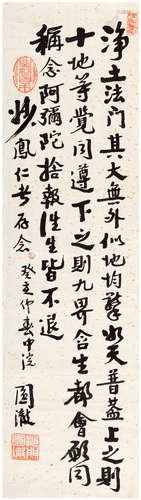 淨土法門其大無外似地均擎如天普蓋上之則
十地等覺同遵下之則九界含生都會願同
稱念阿彌陀捨報往生皆不退
妙鳳仁者存念
癸丑仲春中浣
圓澈